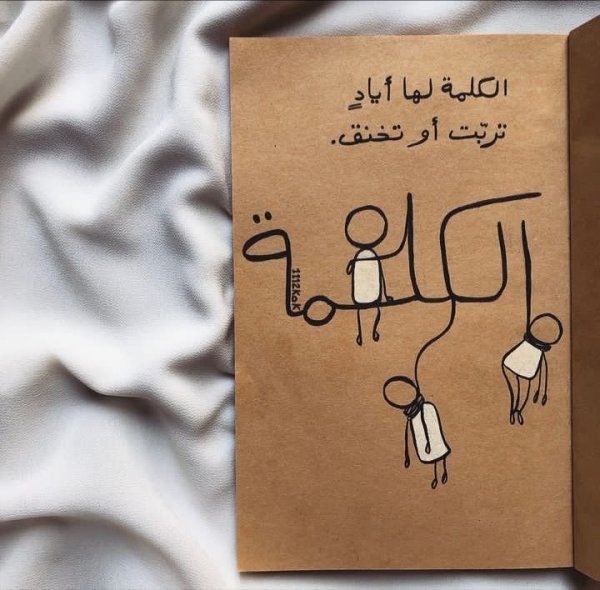 الكلمة لها أيادٍ
تربّت أو تخنق.
الكلمة
1112KoK